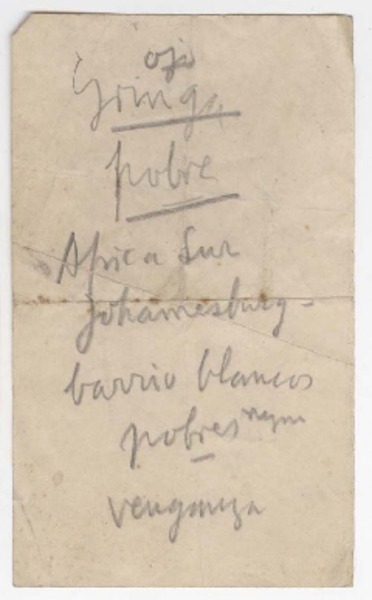 ojo
Gringa
pobre
Africa Sur
Johannesburg -
barrio blancos
pobres
venganza